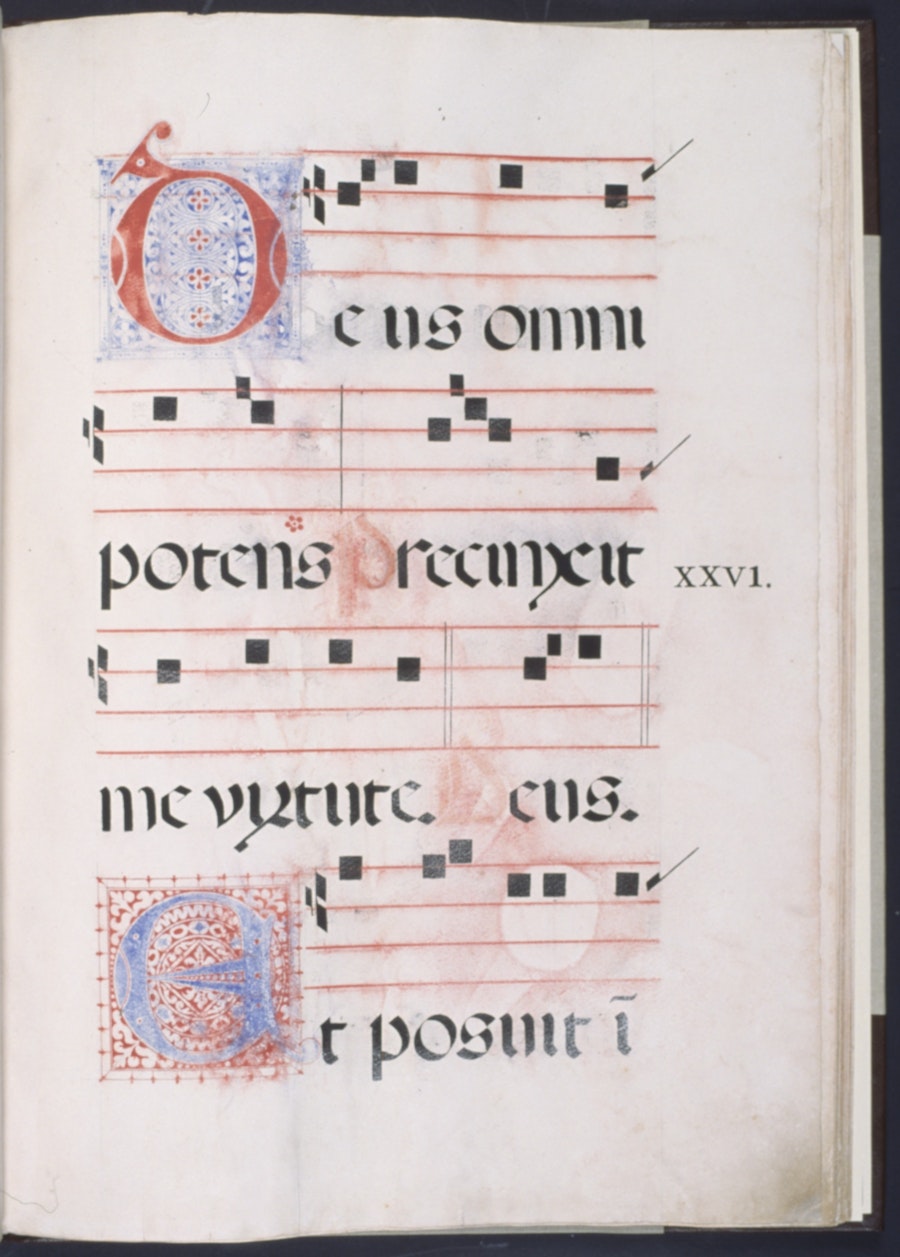 Deus omni
potens precinxit
XXVI.
me virtute. Deus.
Et posuit ī